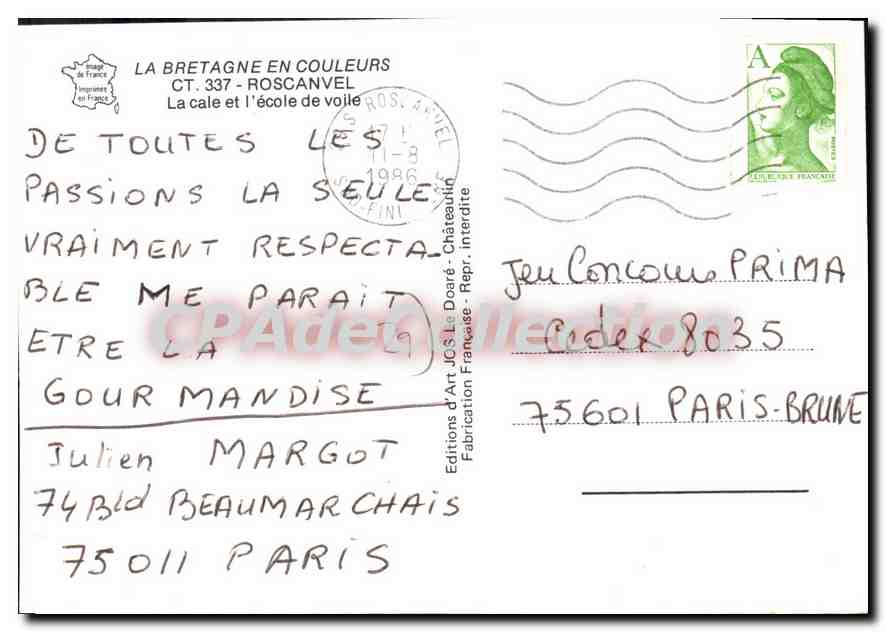 Image
de France
Imprimée
en France
LA BRETAGNE EN COULEURS
CT. 337 - ROSCANVEL
La cale et l'école de voile
DE TOUTES LES
PASSIONS LA SEULE
VRAIMENT RESPECTA-
BLE ME PARAIT
ETRE LA
GOURMANDISE
29
Julien MARGOT
74 Bld BEAUMARCHAIS
75011 PARIS
11-8
1986
Editions d'Art JOS Le Doaré - Châteaulin
Fabrication Française - Repr. Interdite
A
RÉPUBLIQUE FRANÇAISE
Jeu Concours PRIMA
Cedex 8035
75601 PARIS-BRUNE
CPAdeCollection